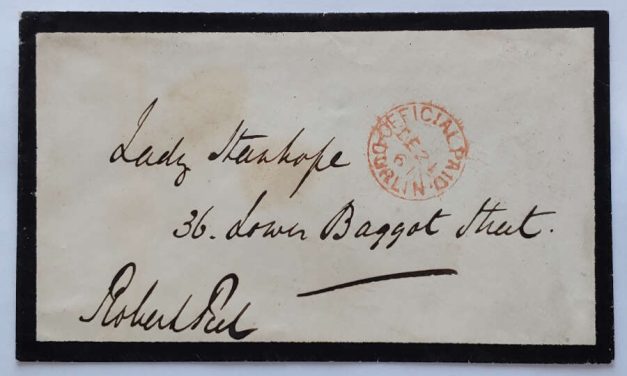 Lady Stanhope
36. Lower Baggot Street.
Robert Peel
OFFICIAL PAID
DUBLIN